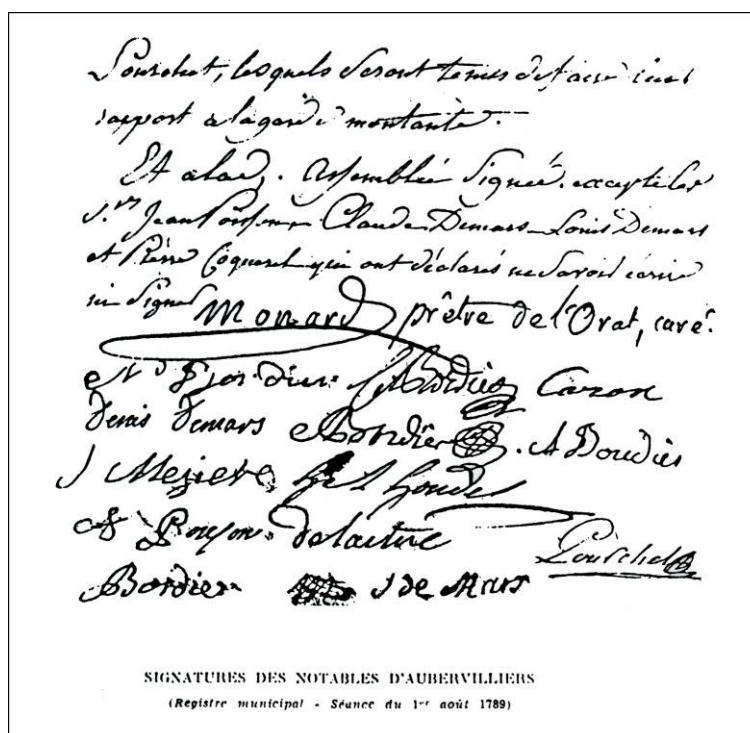 Pourchet, lesquels seront tenus de faire leur
rapport a la garde montante.
Et a lad. assemblée signée. excepté les
S.rs Jean Poisson Claude Demars Louis Demars
et Pierre Coquerel qui ont déclarés ne savoir écrire
ni signer
Monard prêtre de l'Orat, curé.
Bordier Caron
Denis Demars Bordier. A Bordier
J Meziere Houdet
Poisson delacture
Pourchet
Bordier J de Mars
SIGNATURES DES NOTABLES D'AUBERVILLIERS
(Registre municipal - Séance du 1er août 1789)